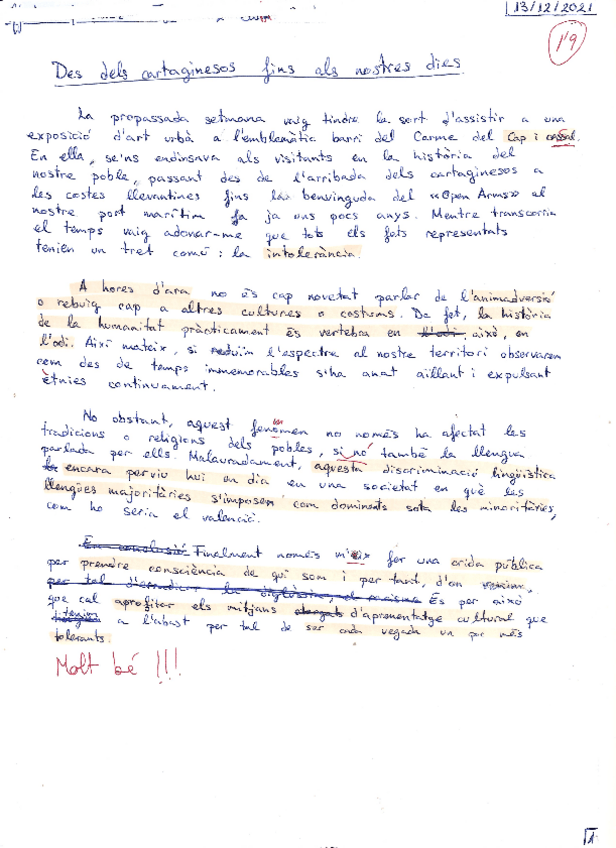 13/12/2021
1'9
Des dels cartaginesos fins als nostres dies.
La propassada setmana vaig tindre la sort d'assistir a una
exposició d'art urbà a l'emblemàtic barri del Carme del Cap i casal.
En ella, se'ns endinsava als visitants en la història del
nostre poble, passant des de l'arribada dels cartaginesos a
les costes llevantines fins la benvinguda del «Open Arms» al
nostre port marítim fa ja uns pocs anys. Mentre transcorria
el temps vaig adonar-me que tots els fets representats
tenien un tret comú: la intolerància.
A hores d'ara no és cap novetat parlar de l'animadversió
o rebuig cap a altres cultures o costums. De fet, la història
de la humanitat pràcticament és vertebra en l'odi això, en
l'odi. Així mateix, si reduïm l'espectre al nostre territori observarem
com des de temps immemorables s'ha anat aïllant i expulsant
ètnies contínuament.
No obstant, aquest fenomen no només ha afectat les
tradicions o religions dels pobles, si no també la llengua
parlada per ells. Malauradament, aquesta discriminació lingüística
encara perviu hui en dia en una societat en què les
llengües majoritàries s'imposen com dominants sota les minoritàries,
com ho seria el valencià.
En conclusió Finalment només m'eix fer una crida pública
per prendre consciència de qui som i per tant, d'on venim.
per tal d'erradicar la diglòssia, el racisme És per això
que cal aprofitar els mitjans d'aprenentatge cultural que
tenim a l'abast per tal de ser cada vegada un poc més
tolerants.
Molt bé !!!
1